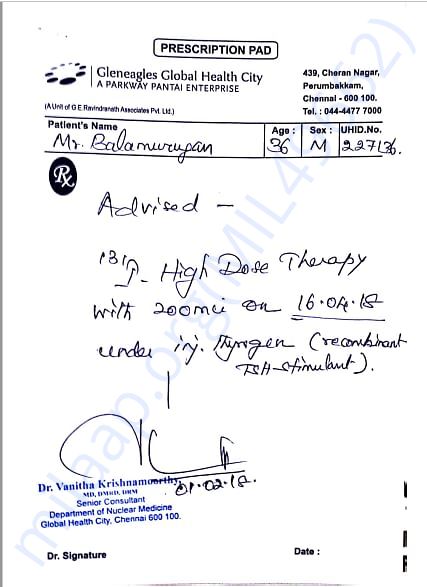 PRESCRIPTION PAD
Gleneagles Global Health City
A PARKWAY PANTAI ENTERPRISE
(A Unit of G E Ravindranath Associates Pvt. Ltd.)
439, Cheran Nagar,
Perumbakkam,
Chennai - 600 100.
Tel. : 044-4477 7000
Patient's Name
Mr. Balamurugan
Age :
36
Sex :
M
UHID.No.
227136.
Rx
Advised -
131I- High Dose Therapy
with 200mci on 16.04.18
under inj. Thyrogen (recombinant
TSH-stimulant).
01.02.18.
Dr. Vanitha Krishnamoorthy
MD, DMRD, DRM
Senior Consultant
Department of Nuclear Medicine
Global Health City, Chennai 600 100.
Dr. Signature
Date :
milaap.org(MIL45952)